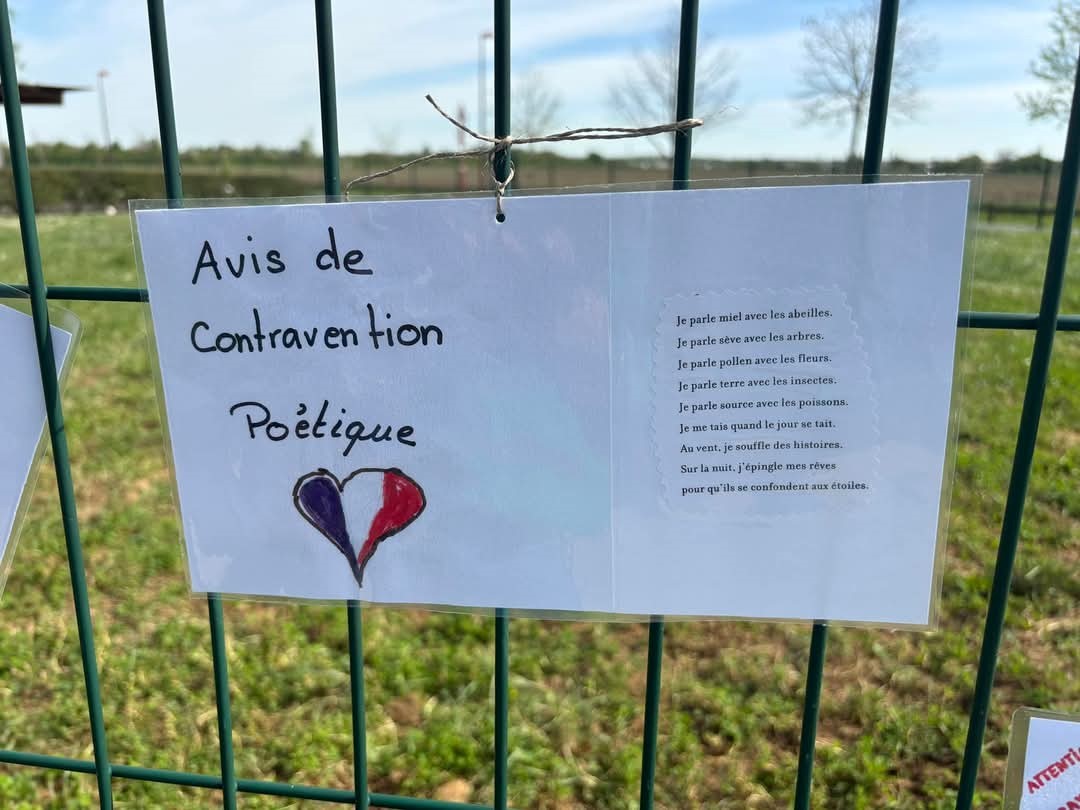 Avis de
Contravention
Poétique
Je parle miel avec les abeilles.
Je parle sève avec les arbres.
Je parle pollen avec les fleurs.
Je parle terre avec les insectes.
Je parle source avec les poissons.
Je me tais quand le jour se tait.
Au vent, je souffle des histoires.
Sur la nuit, j'épingle mes rêves
pour qu'ils se confondent aux étoiles.